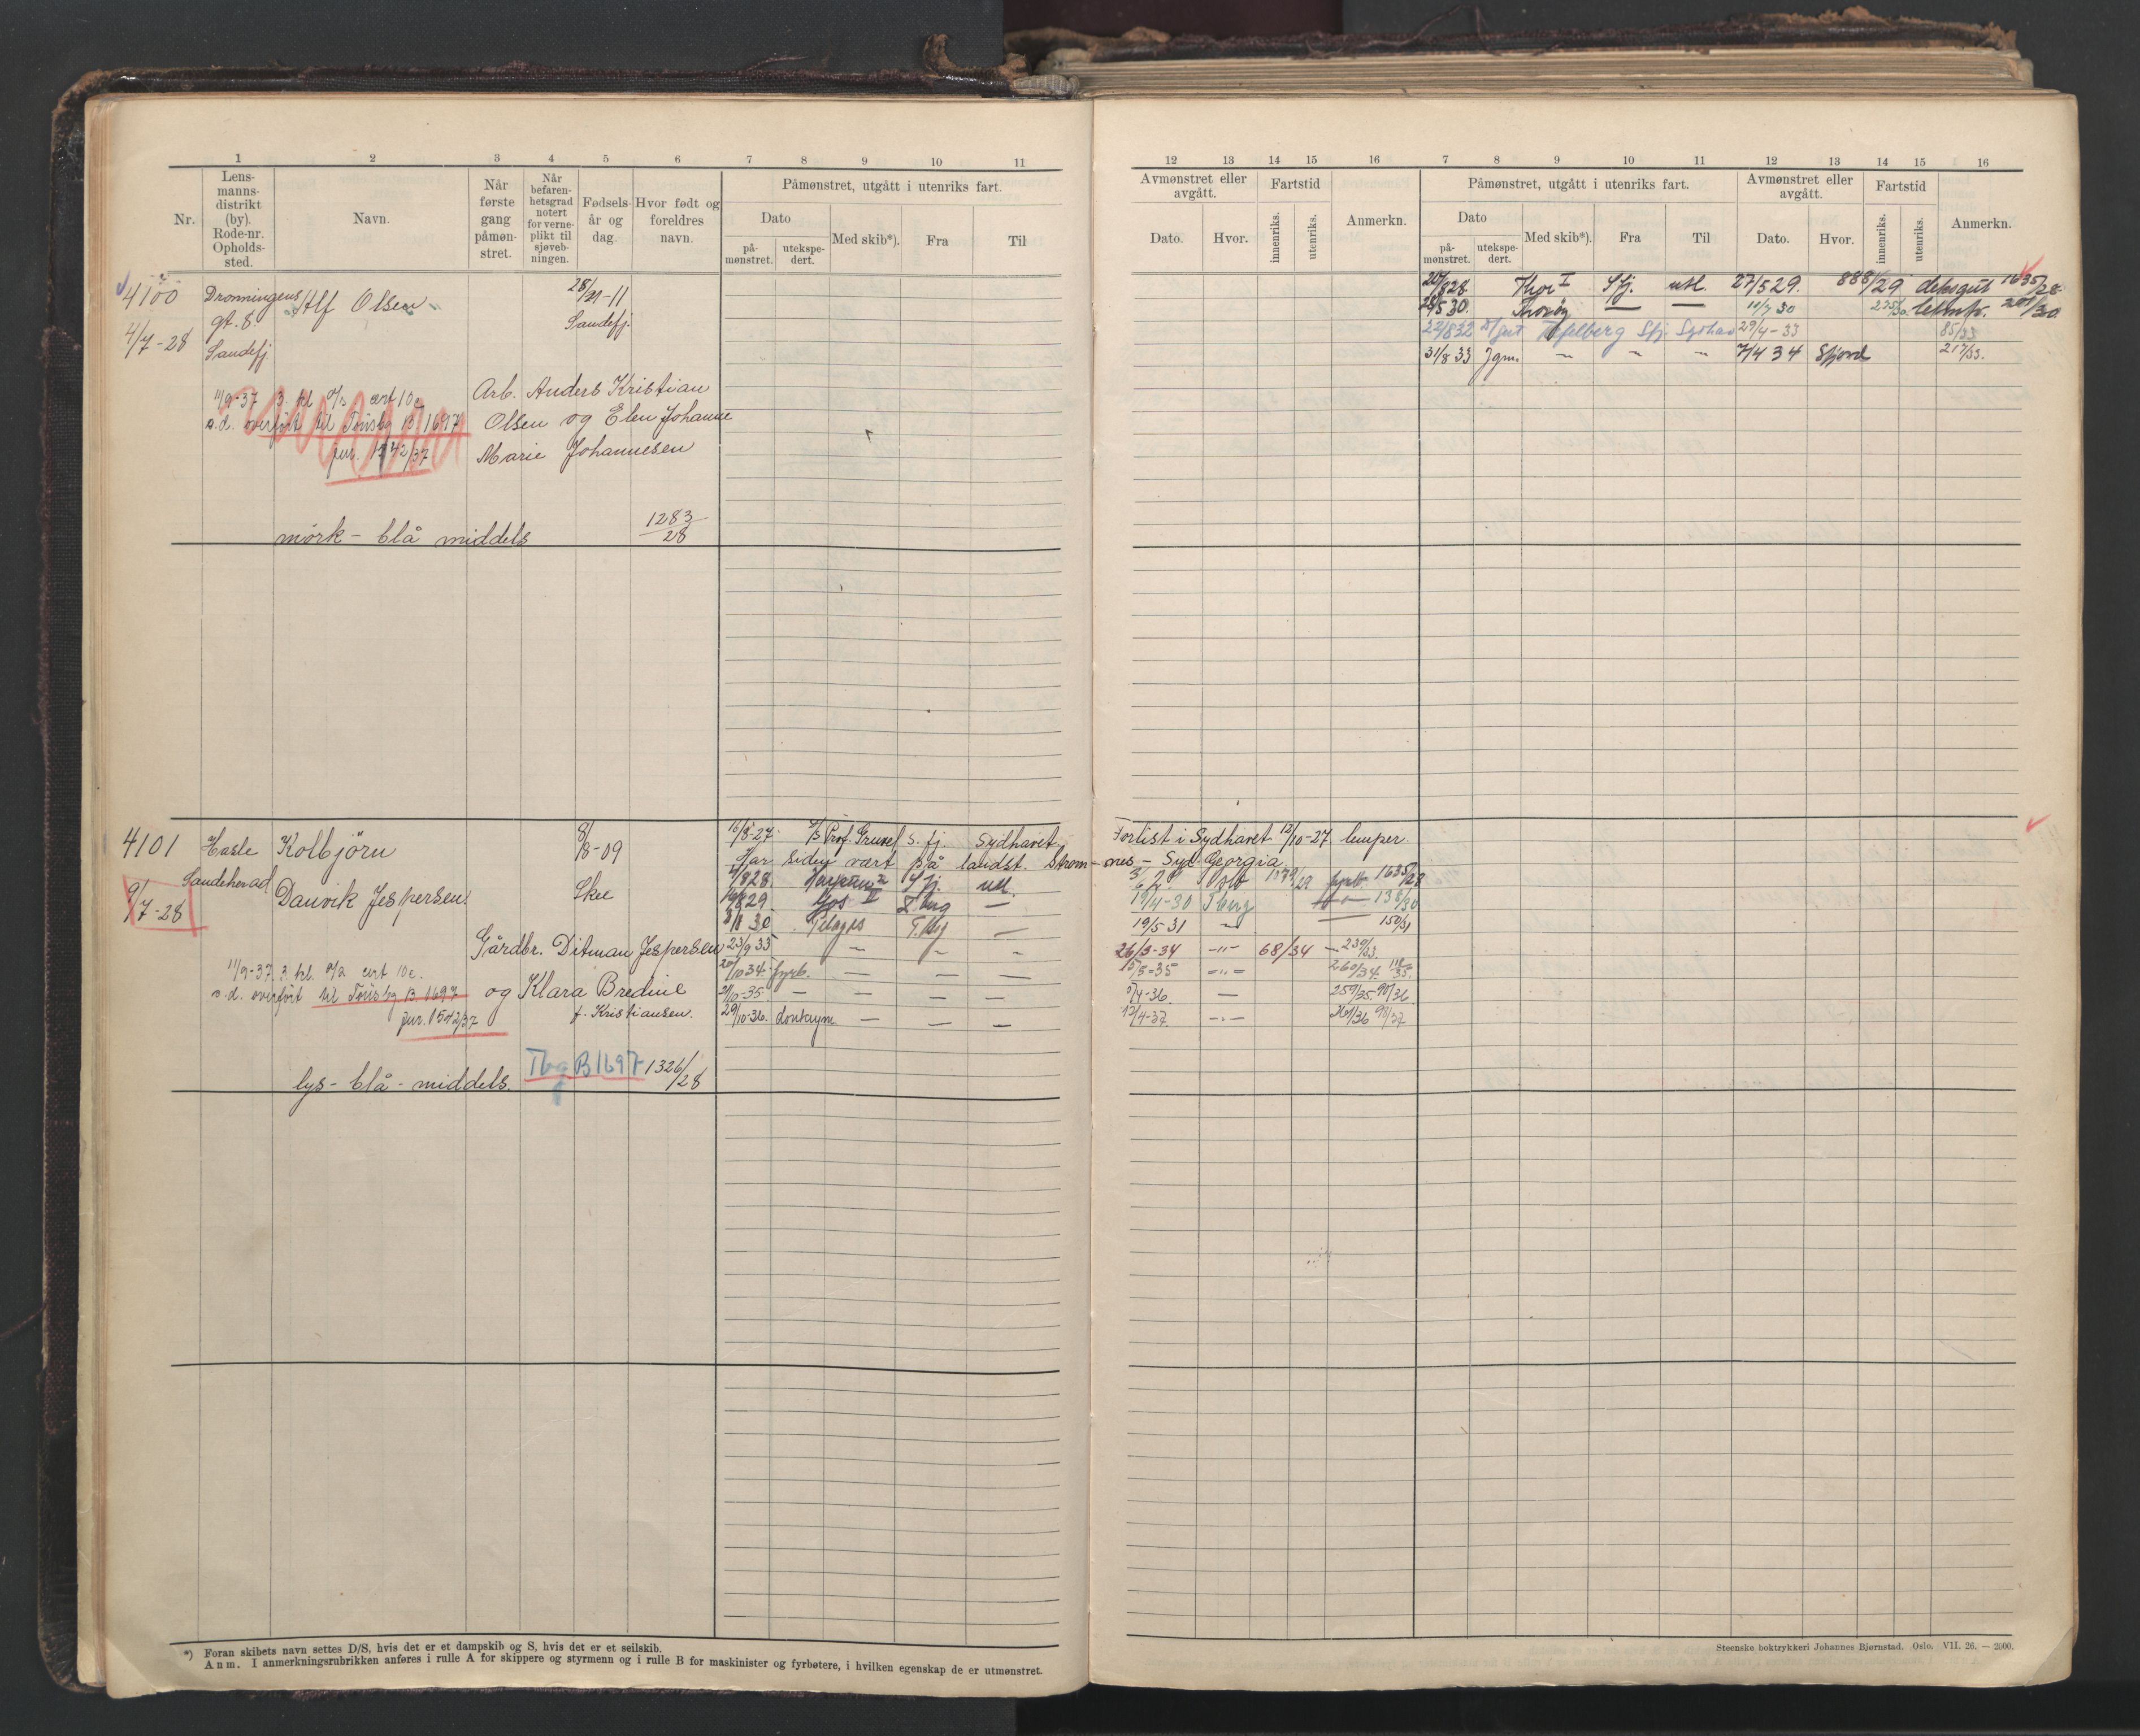 1 2 3 4 5 6 7 8 9 10 11
Nr.
Lens-
manns-
distrikt
(by).
Rode-nr.
Opholds-
sted.
Navn.
Når
første
gang
påmøn-
stret.
Når
befaren-
hetsgrad
notert
for verne-
plikt til
sjøveb-
ningen.
Fødsels-
år og
dag.
Hvor født og
foreldres
navn.
Påmønstret, utgått i utenriks fart.
Dato
på-
mønstret.
utekspe-
dert.
Med skib*).
Fra
Til
4100
4/7-28
Dronningens
gt. 8.
Sandefj.
Alf Olsen
Sandefj.
11/9-37 3. kl cert 10c
s.d. overført til Tönsbg B 1697
jnr. 1542/37
Arb. Anders Kristian
Olsen og Elen Johanne
Marie Johannesen
mörk - blå middels
1283/28
4101
9/7-28
Hasle
Sandeherad
Kolbjörn
Danvik Jespersen.
8/8-09
Skee
Gårdbr. Ditman Jespersen
og Klara Bredine
f. Kristiansen.
11/9-37 3. kl. cert 10c.
s.d. overført til Tönsbg B. 1697
jnr. 1542/37
lys - blå - middels.
Tbg B1697 1326/28
16/8-27 Prof. Gruvel S. fj. Sydhavet.
Har siden vært på landst. Strom-
8 28. S fj. utl.
8 29 II T berg —
30 T. bg —
23/9 33 — — —
20/10 34. fyrb. — — —
21/10-35 — — — —
29/10-36. donkeym. — — —
*) Foran skibets navn settes D/S, hvis det er et dampskib og S, hvis det er et seilskib.
Anm. I anmerkningsrubrikken anføres i rulle A for skippere og styrmenn og i rulle B for maskinister og fyrbøtere, i hvilken egenskap de er utmønstret.
12 13 14 15 16 7 8 9 10 11 12 13 14 15 16
Avmønstret eller
avgått.
Dato.
Hvor.
Fartstid
innenriks.
utenriks.
Anmerkn.
Påmønstret, utgått i utenriks fart.
Dato
på-
mønstret.
utekspe-
dert.
Med skib*).
Fra
Til
Avmønstret eller
avgått.
Dato.
Hvor.
Fartstid
innenriks.
utenriks.
Anmerkn.
8 28. Thor I S fj. utl. 27/5 29. 888/29 deksgut 1635/28.
5 30. Thorøy — — 11/7 30 201/30
22/8 32 gut Tafelberg Sfj Sydhav 29/4-33 85/33
31/8 33 Jgm. — — — 7/4 34 Sfjord 217/33.
Forlist i Sydhavet 12/10-27. lemper.
nes - Syd Georgia
Oslo fyrb. 1635/28
19/4-30 Tberg 138/30
19/5-31 — 150/31
26/3-34 -"- 68/34 239/33.
15/5-35 -"- 260/34. 118/35.
/4-36. — 259/35. 90/36.
12/4-37. -"- 261/36 98/37
Steenske boktrykkeri Johannes Bjørnstad. Oslo. VII. 26. — 2000.